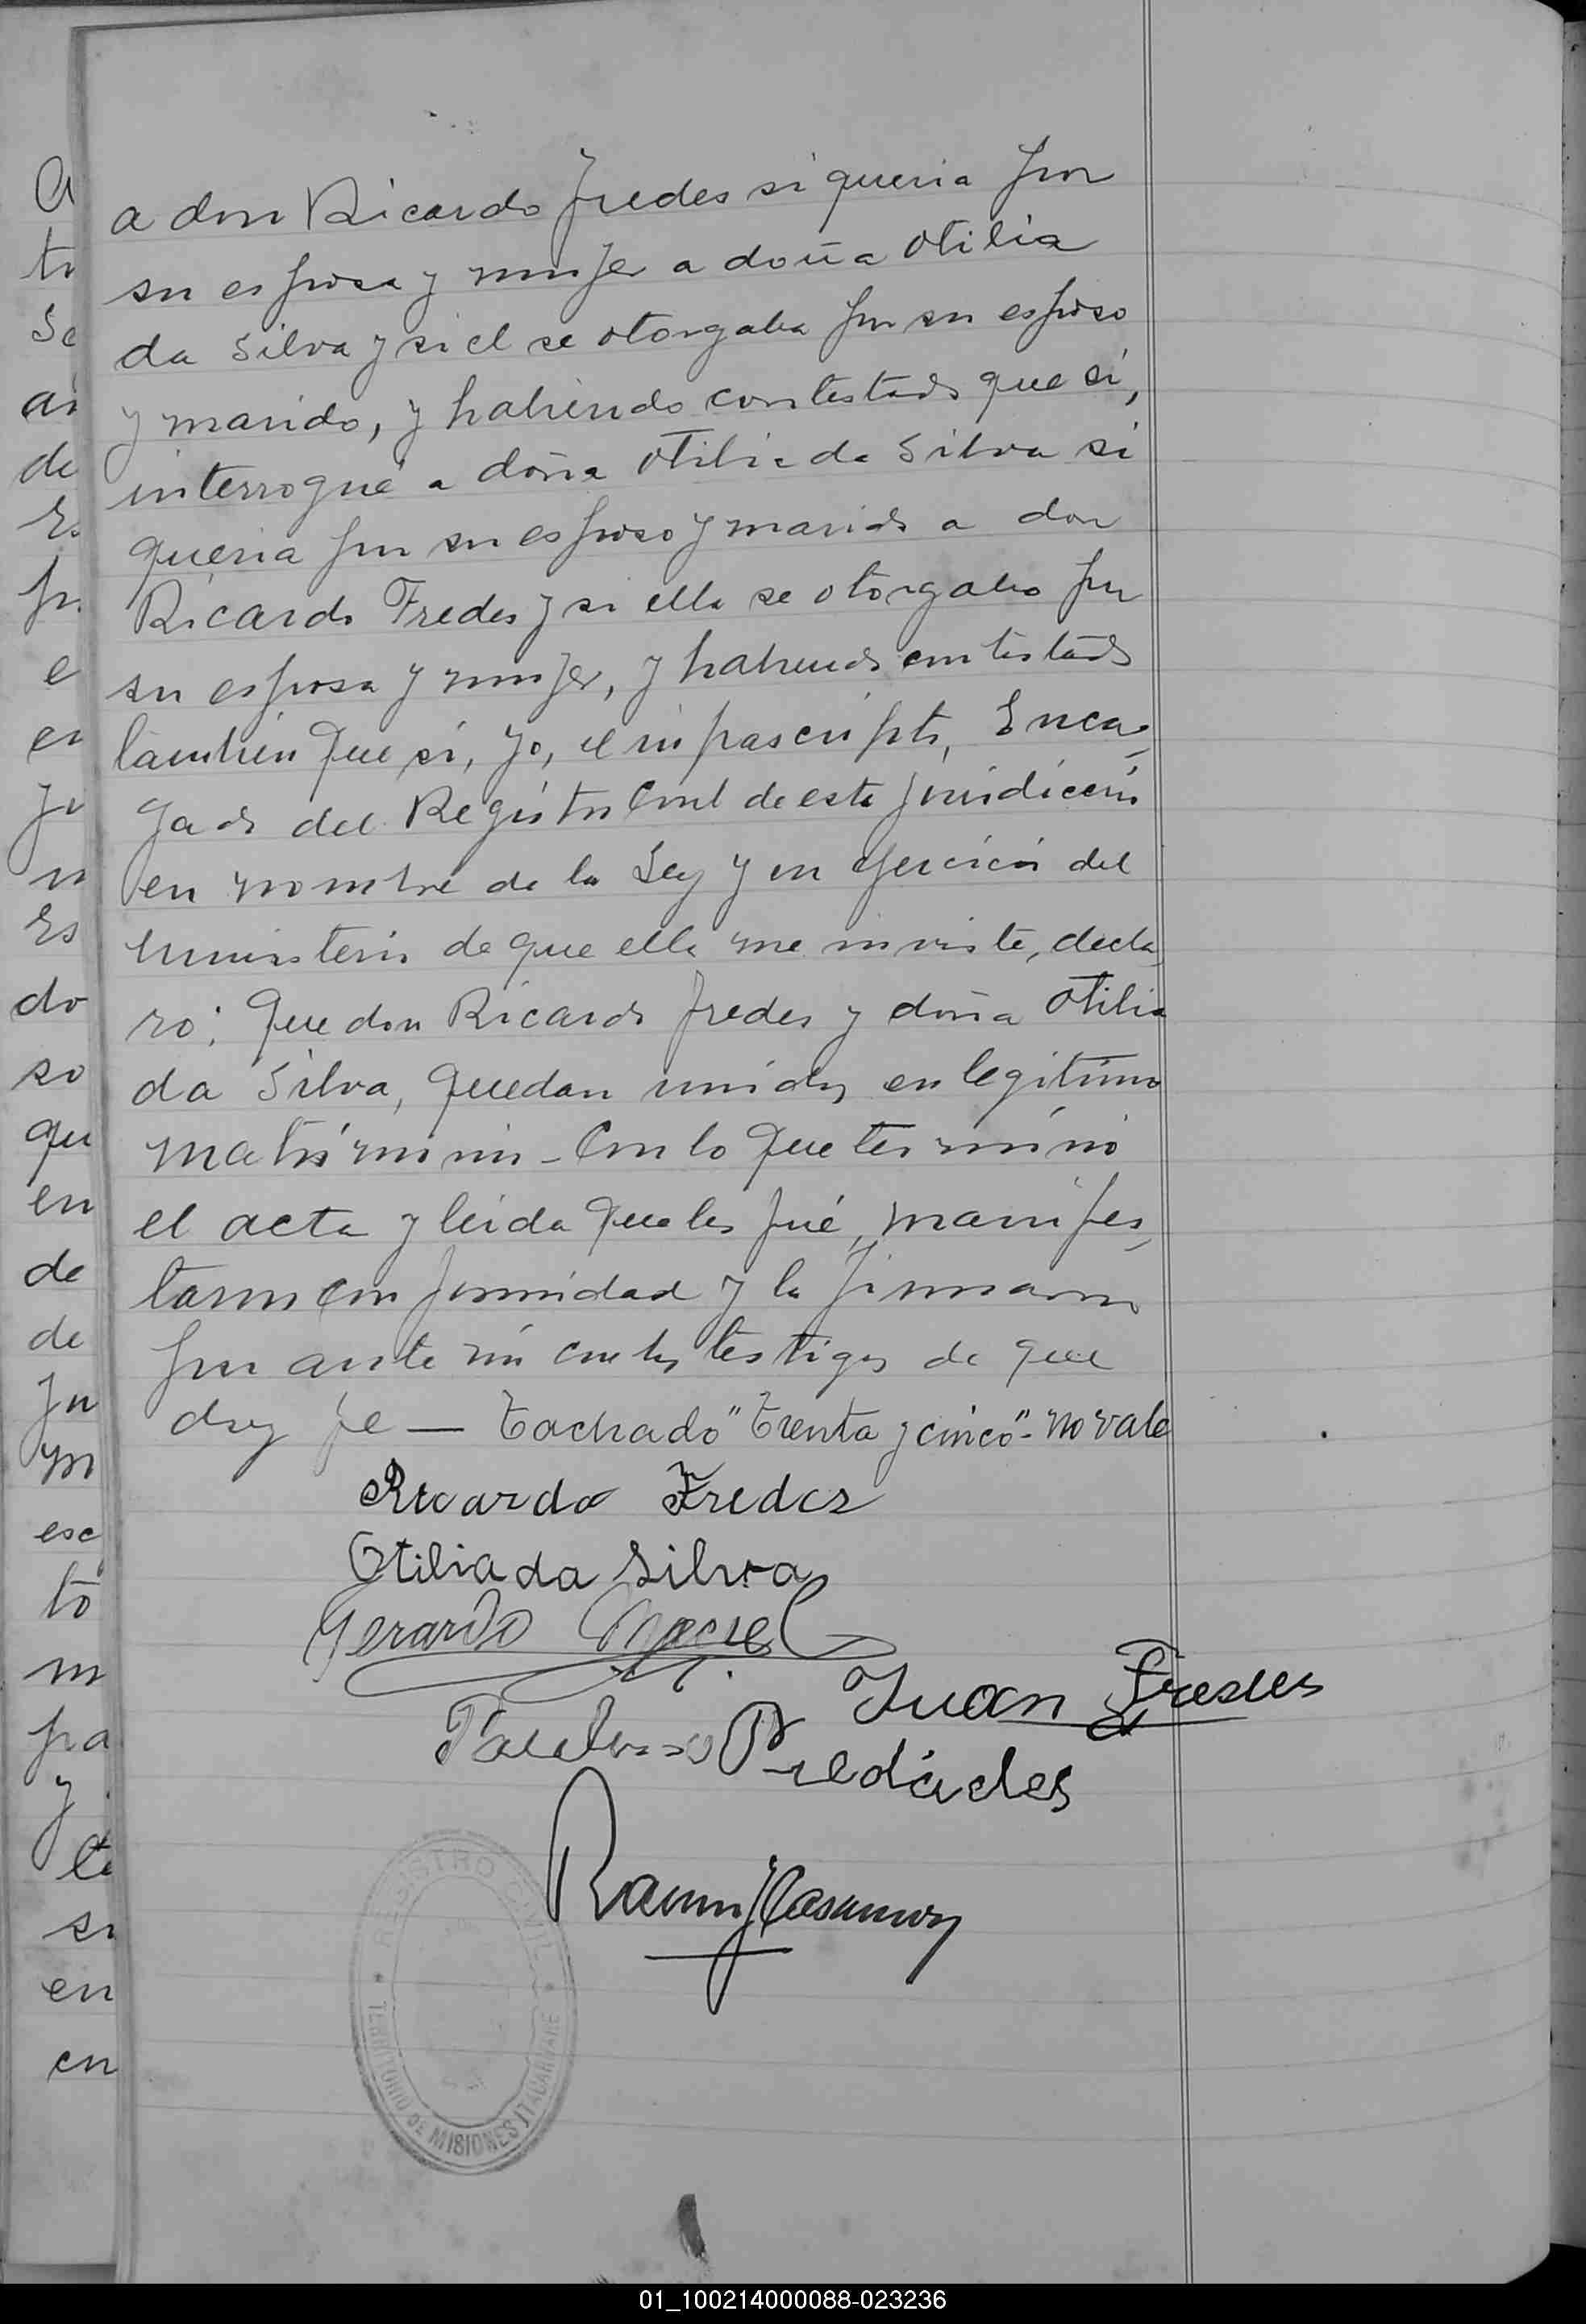 a don Ricardo Fredes si queria por
su esposa y mujer a doña Otilia
da Silva y si el se otorgaba por su esposo
y marido, y habiendo contestado que si,
interrogué a doña Otilia da Silva si
queria por su esposo y marido a don
Ricardo Fredes y si ella se otorgaba por
su esposa y mujer, y habiendo contestado
tambien que si, yo, el infrascripto, Encar-
gado del Registro Civil de esta jurisdiccion
en nombre de la Ley y en ejercicio del
ministerio de que ella me inviste, decla-
ro: que don Ricardo Fredes y doña Otilia
da Silva, quedan unidos en legitimo
matrimonio - Con lo que terminó
el acta y leida que les fué, manifes-
taron conformidad y la firmaron
por ante mi con los testigos de que
doy fe — Tachado "Trenta y cinco" - no vale
Ricardo Fredes
Otilia da Silva
Gerardo
Juan Fredes
Ramon J Casanova
REGISTRO CIVIL
TERRITORIO DE MISIONES ITACARUARE
A
tr
Se
an
de
Es
pr
e
en
ju
n
Es
do
so
qu
en
de
de
Ju
m
esc
to
m
pa
y
te
si
en
en
01_100214000088-023236